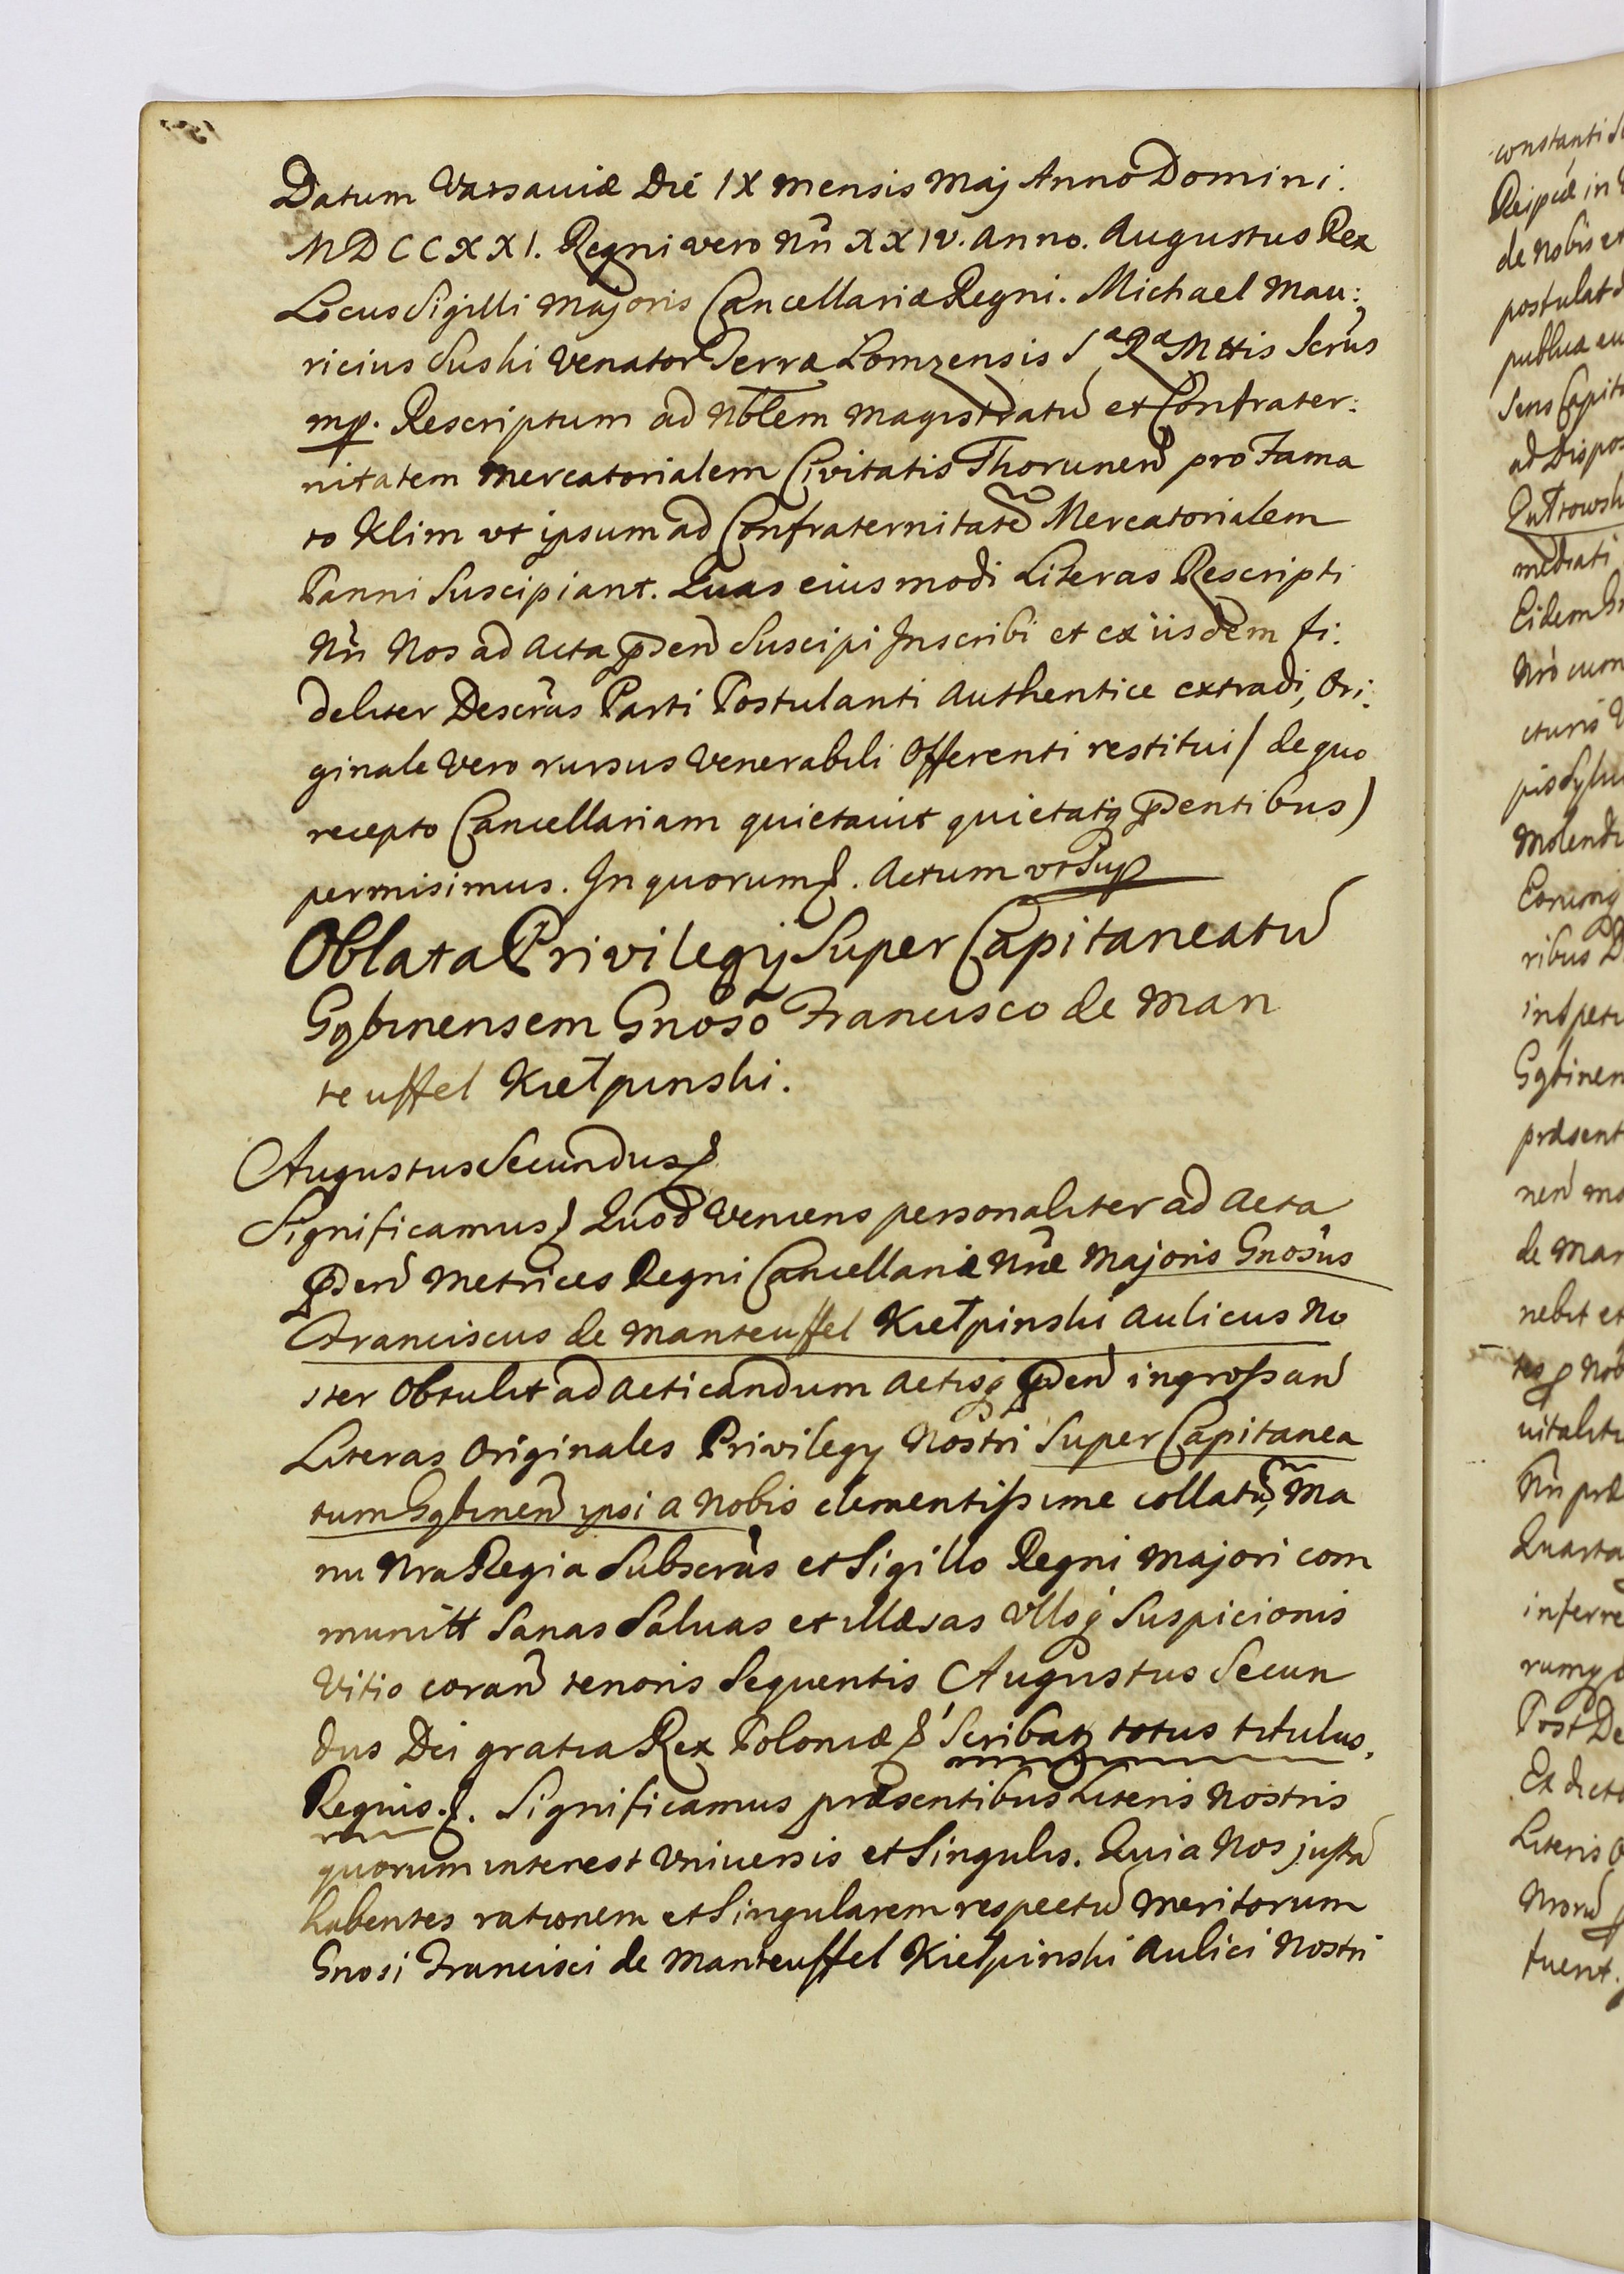 Datum Varsaviæ Die IX mensis Maj Anno Domini.
MDCCXXI. Regni vero Nrī XXIV. Anno. Augustus Rex
Locus Sigilli Majoris Cancellariæ Regni. Michael Mau:
ricius Suski Venator Terræ Lomzensis S^a R^a Mttis Scrūs
mp. Rescriptum ad Nobłem Magistratū et Confrater:
nitatem Mercatorialem Civitatis Thorunen̄ pro Fama
to Klim vt ipsum ad Confraternitatē Mercatorialem
Panni Suscipiant. Quas eiusmodi Literas Rescripti
Nrī Nos ad Acta p̄den̄ Suscipi Inscribi et ex iisdem fi:
deliter Descrās Parti Postulanti Authentice extradi, Ori:
ginale Vero rursus Venerabili Offerenti restitui / de quo
recepto Cancellariam quietavit quietatq p̄dentibus)
permisimus. In quorum &. Actum vt Sup
Oblata Privilegij Super Capitaneatū
Gąbinensem Gnōso Francisco de Man
teuffel Kiełpinski.
Augustus Secundus &
Significamus & Quod Veniens personaliter ad Acta
p̄den̄ Metrices Regni Cancellariæ Nrǣ Majoris Gnosūs
Franciscus de Manteuffel Kiełpinski Aulicus No
ster Obtulit ad Acticandum Actisq p̄den̄ ingrossan̄
Literas Originales Privilegy Nostri Super Capitanea
tum Gąbinen̄ ipsi a Nobis clementissime collatū, Ma
nu Nra Regia Subscrās et Sigillo Regni Majori com
munitt Sanas Salvas et illæsas Vllosq Suspicionis
Vitio caran̄ tenoris Sequentis Augustus Secun
dus Dei gratia Rex Poloniæ & Scribatr totus titulus
Regius. &. Significamus præsentibus Literis Nostris
quorum interest Vniversis et Singulis. Quia Nos justā
habentes rationem et Singularem respectū meritorum
Gnosi Francisci de Manteuffel Kiełpinski Aulici Nostri